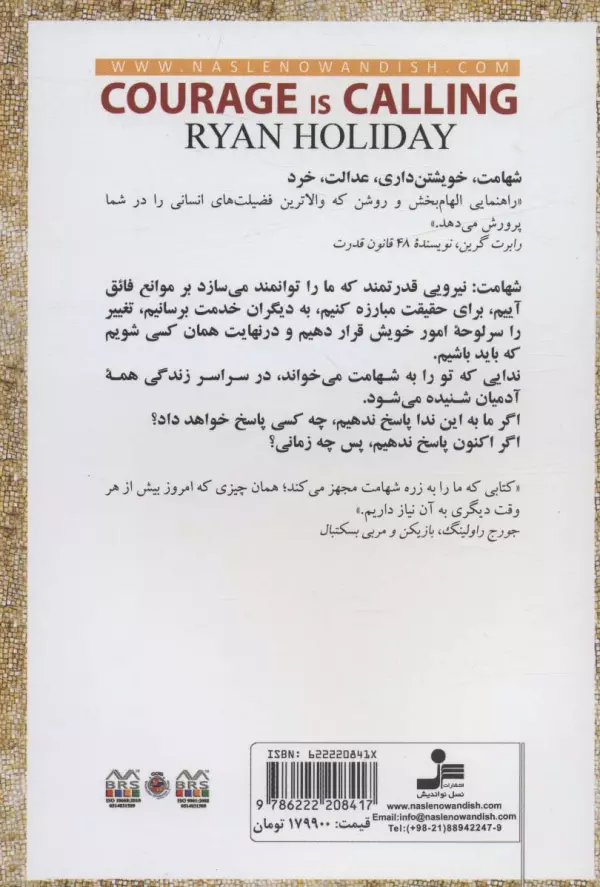 WWW.NASLENOWANDISH.COM
COURAGE IS CALLING
RYAN HOLIDAY
شهامت، خویشتن‌داری، عدالت، خرد
«راهنمایی الهام‌بخش و روشن که والاترین فضیلت‌های انسانی را در شما
پرورش می‌دهد.»
رابرت گرین، نویسندهٔ ۴۸ قانون قدرت
شهامت: نیرویی قدرتمند که ما را توانمند می‌سازد بر موانع فائق
آییم، برای حقیقت مبارزه کنیم، به دیگران خدمت برسانیم، تغییر
را سرلوحهٔ امور خویش قرار دهیم و درنهایت همان کسی شویم
که باید باشیم.
ندایی که تو را به شهامت می‌خواند، در سراسر زندگی همهٔ
آدمیان شنیده می‌شود.
اگر ما به این ندا پاسخ ندهیم، چه کسی پاسخ خواهد داد؟
اگر اکنون پاسخ ندهیم، پس چه زمانی؟
«کتابی که ما را به زره شهامت مجهز می‌کند؛ همان چیزی که امروز بیش از هر
وقت دیگری به آن نیاز داریم.»
جورج راولینگ، بازیکن و مربی بسکتبال
ISBN: 622220841X
9 786222 208417
قیمت: ۱۷۹۹۰۰ تومان
انتشارات
نسل نواندیش
www.naslenowandish.com
Email:info@naslenowandish.com
Tel:(+98-21)88942247-9
BRS
BRS